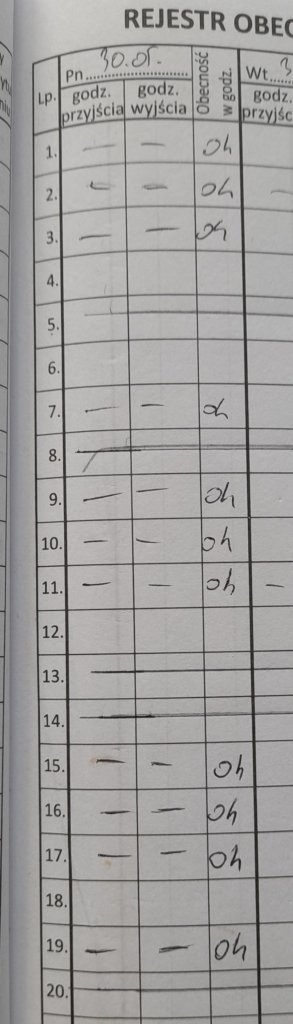 REJESTR OBEC
Lp. Pn 30.05. Obecność w godz. Wt. 3
godz. przyjścia godz. wyjścia godz. przyjśc
1. — — 0h
2. — — 0h —
3. — — 0h
4.
5.
6.
7. — — 0h
8.
9. — — 0h
10. — — 0h
11. — — 0h —
12.
13.
14.
15. — — 0h
16. — — 0h
17. — — 0h
18.
19. — — 0h
20.